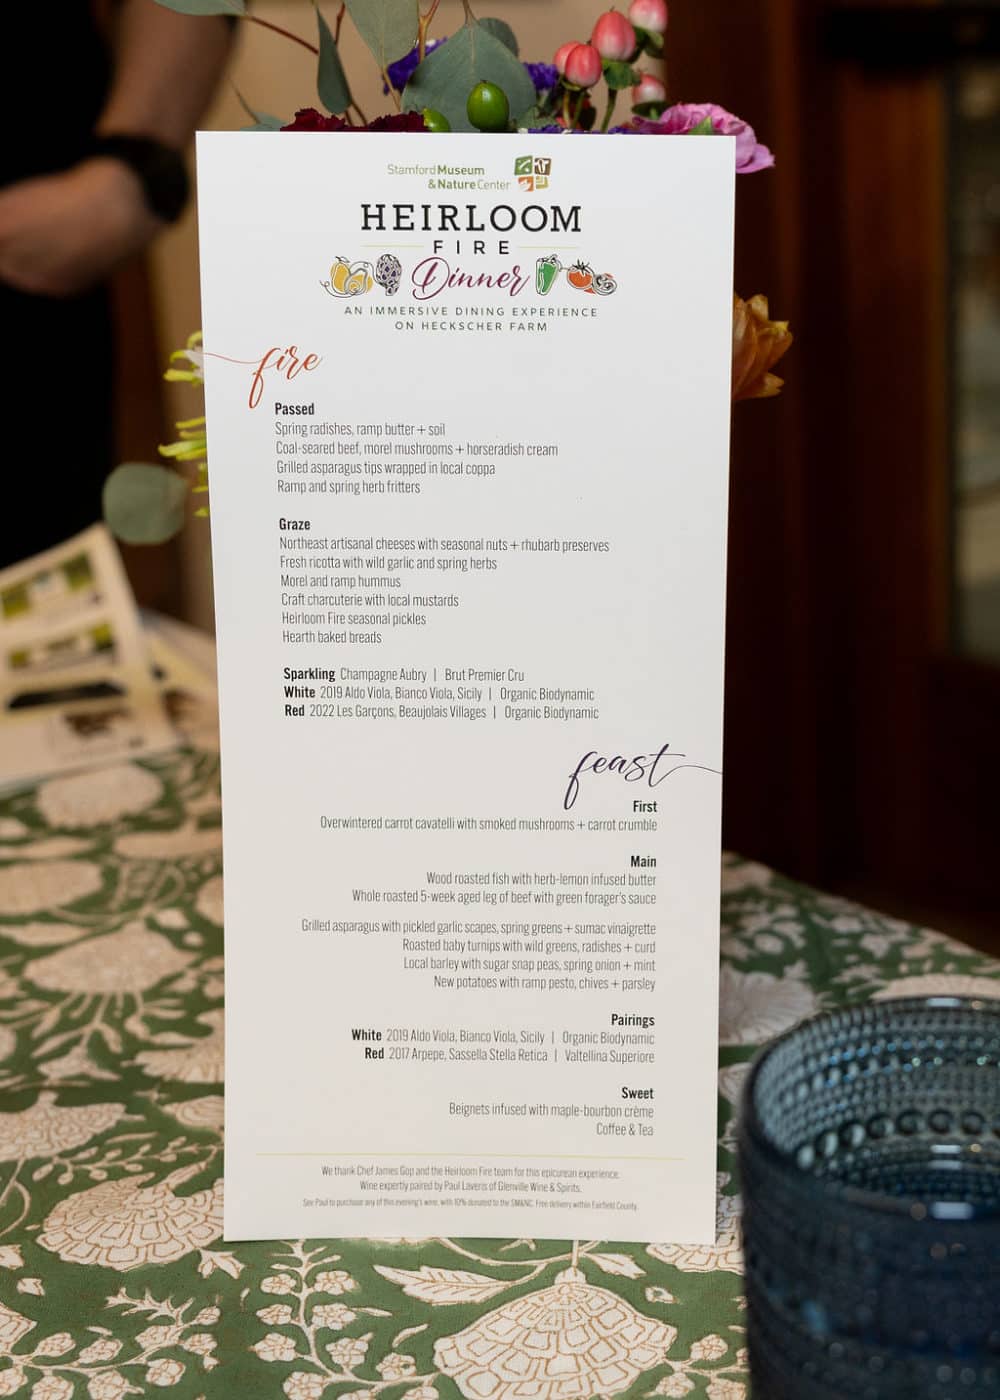 Stamford Museum
& Nature Center
HEIRLOOM
FIRE
Dinner
AN IMMERSIVE DINING EXPERIENCE
ON HECKSCHER FARM
fire
Passed
Spring radishes, ramp butter + soil
Coal-seared beef, morel mushrooms + horseradish cream
Grilled asparagus tips wrapped in local coppa
Ramp and spring herb fritters
Graze
Northeast artisanal cheeses with seasonal nuts + rhubarb preserves
Fresh ricotta with wild garlic and spring herbs
Morel and ramp hummus
Craft charcuterie with local mustards
Heirloom Fire seasonal pickles
Hearth baked breads
Sparkling Champagne Aubry | Brut Premier Cru
White 2019 Aldo Viola, Bianco Viola, Sicily | Organic Biodynamic
Red 2022 Les Garçons, Beaujolais Villages | Organic Biodynamic
feast
First
Overwintered carrot cavatelli with smoked mushrooms + carrot crumble
Main
Wood roasted fish with herb-lemon infused butter
Whole roasted 5-week aged leg of beef with green forager's sauce
Grilled asparagus with pickled garlic scapes, spring greens + sumac vinaigrette
Roasted baby turnips with wild greens, radishes + curd
Local barley with sugar snap peas, spring onion + mint
New potatoes with ramp pesto, chives + parsley
Pairings
White 2019 Aldo Viola, Bianco Viola, Sicily | Organic Biodynamic
Red 2017 Arpepe, Sassella Stella Retica | Valtellina Superiore
Sweet
Beignets infused with maple-bourbon crème
Coffee & Tea
We thank Chef James Gop and the Heirloom Fire team for this epicurean experience.
Wine expertly paired by Paul Laveris of Glenville Wine & Spirits.
See Paul to purchase any of this evening's wine, with 10% donated to the SM&NC. Free delivery within Fairfield County.